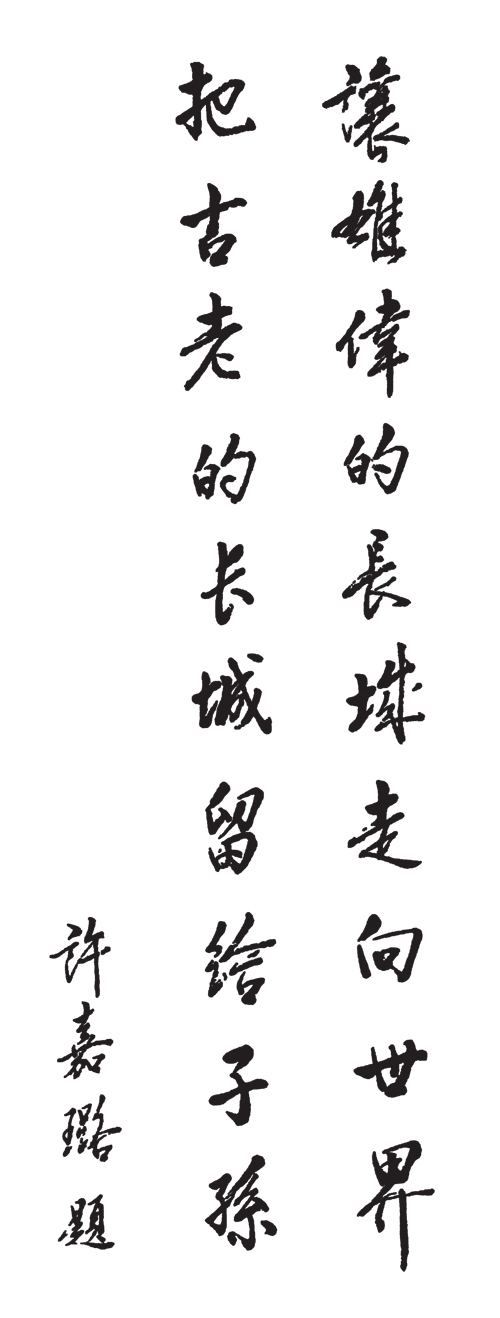 讓雄偉的長城走向世界
把古老的长城留给子孫
許嘉璐題